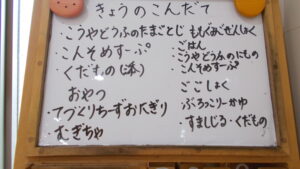 きょうのこんだて
・こうやどうふのたまごとじ
・こんそめすーぷ
・くだもの
おやつ
・てづくりちーずおにぎり
・むぎちゃ
もぐもぐごぜんしょく
・ごはん
・こうやどうふのにもの
・こんそめすーぷ
ごごしょく
・ぶろっこりーかゆ
・すましじる・くだもの